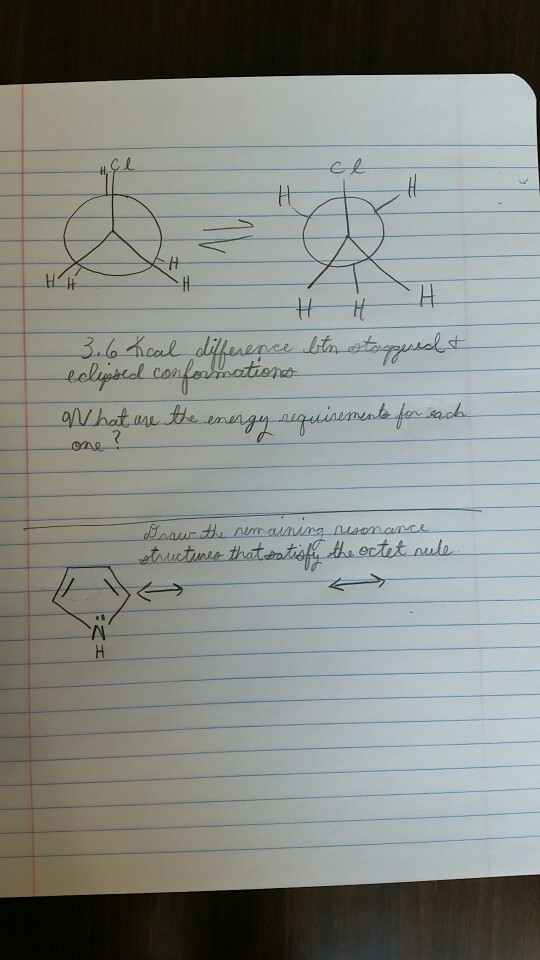 H Cl
H H H H
Cl
H H
H H H
3.6 Kcal difference btn staggered &
eclipsed conformations
What are the energy requirements for each
one?
Draw the remaining resonance
structures that satisfy the octet rule.
N
H